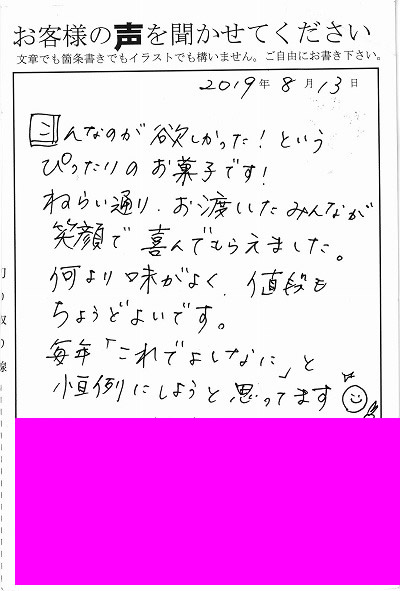 お客様の声を聞かせてください
文章でも箇条書きでもイラストでも構いません。ご自由にお書き下さい。
2019年 8月 13日
こんなのが欲しかった!という
ぴったりのお菓子です!
ねらい通り、お渡ししたみんなが
笑顔で喜んでもらえました。
何より味がよく、値段も
ちょうどよいです。
毎年「これでよしなに」と
恒例にしようと思ってます
切り取り線